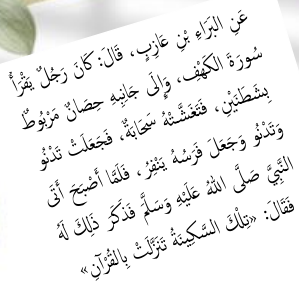 عَنِ البَرَاءِ بْنِ عَازِبٍ، قَالَ: كَانَ رَجُلٌ يَقْرَأُ
سُورَةَ الكَهْفِ، وَإِلَى جَانِبِهِ حِصَانٌ مَرْبُوطٌ
بِشَطَنَيْنِ، فَتَغَشَّتْهُ سَحَابَةٌ، فَجَعَلَتْ تَدْنُو
وَتَدْنُو وَجَعَلَ فَرَسُهُ يَنْفِرُ، فَلَمَّا أَصْبَحَ أَتَى
النَّبِيَّ صَلَّى اللهُ عَلَيْهِ وَسَلَّمَ فَذَكَرَ ذَلِكَ لَهُ
فَقَالَ: «تِلْكَ السَّكِينَةُ تَنَزَّلَتْ بِالقُرْآنِ»